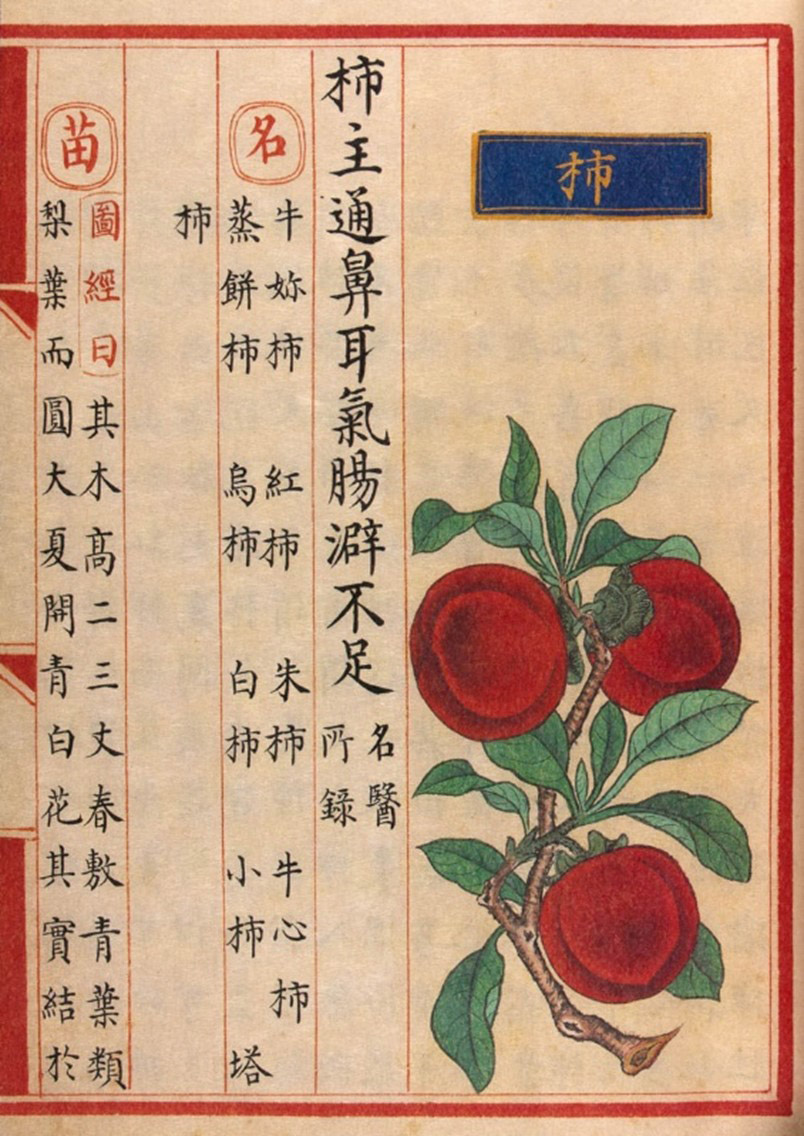 柿
柿主通鼻耳氣腸澼不足
名醫
所錄
名
牛妳柿 紅柿 朱柿 牛心柿
蒸餅柿 烏柿 白柿 小柿 塔
柿
苗
圖經曰其木髙二三丈春敷青葉類
梨葉而圓大夏開青白花其實結於